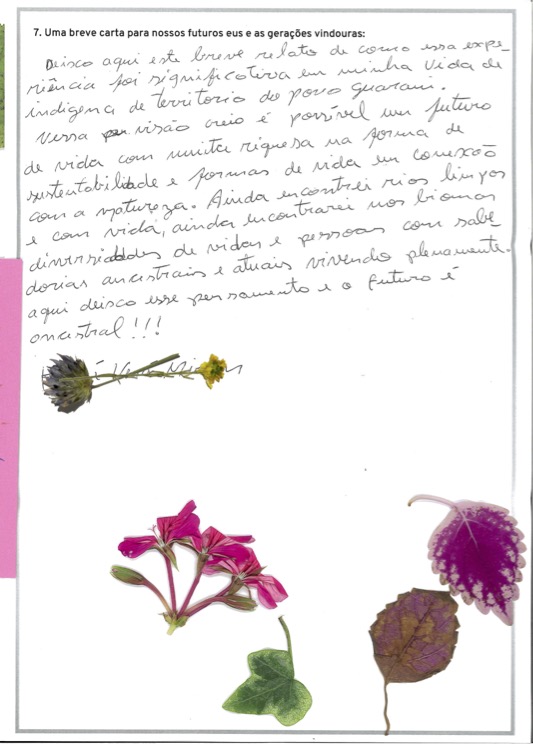 7. Uma breve carta para nossos futuros eus e as gerações vindouras:
Deisco aqui este breve relato de como essa expe-
riência foi significativa em minha vida de
indigena de territorio do povo guarani.
Nessa visão creio é possível um futuro
de vida com muita riquesa na forma de
sustentabilidade e formas de vida em conexão
com a natureza. Ainda encontrei rios limpos
e com vida, ainda encontrarei nos biomas
diversidades de vidas e pessoas com sabe-
dorias ancestrais e atuais vivendo plenamente.
aqui deisco esse pensamento e o futuro é
ancestral!!!